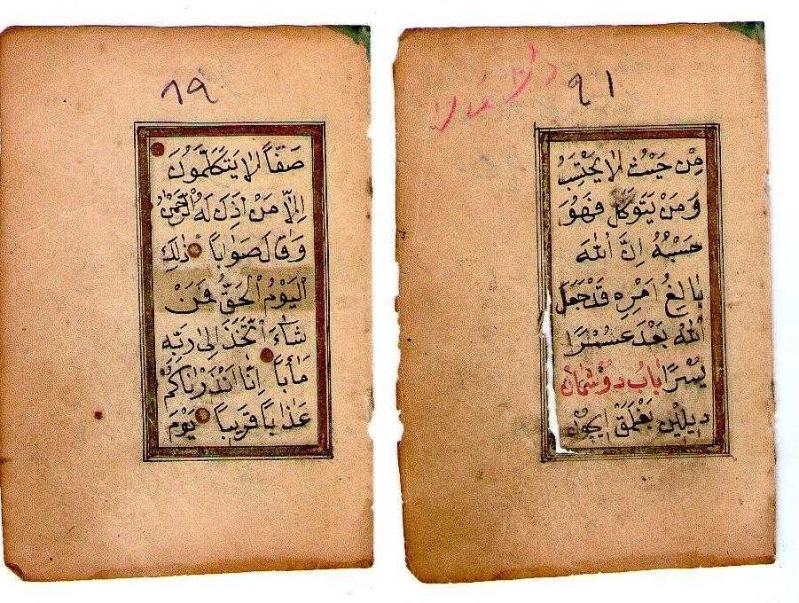 ٨٩
صَفّاً لا يَتَكَلَّمُونَ
اِلاّ مَنْ اَذِنَ لَهُ الرَّحْمٰنُ
وَقَالَ صَوَاباً ذٰلِكَ
اَلْيَوْمُ الْحَقُّ فَمَنْ
شَاءَ اتَّخَذَ اِلٰى رَبِّهِ
مَأباً اِنَّا اَنْذَرْنَاكُمْ
عَذَاباً قَرِيباً يَوْمَ
٩١
مِنْ حَيْثُ لا يَحْتَسِبُ
وَمَنْ يَتَوَكَّلْ فَهُوَ
حَسْبُهُ اِنَّ اللهَ
بَالِغُ اَمْرِهِ قَدْ جَعَلَ
اَللهُ بَعْدَ عُسْرًا
يُسْرًا بَابُ دُوشْمَانْ
دِيلِين بَغْلَمَقْ اِيچُونْ